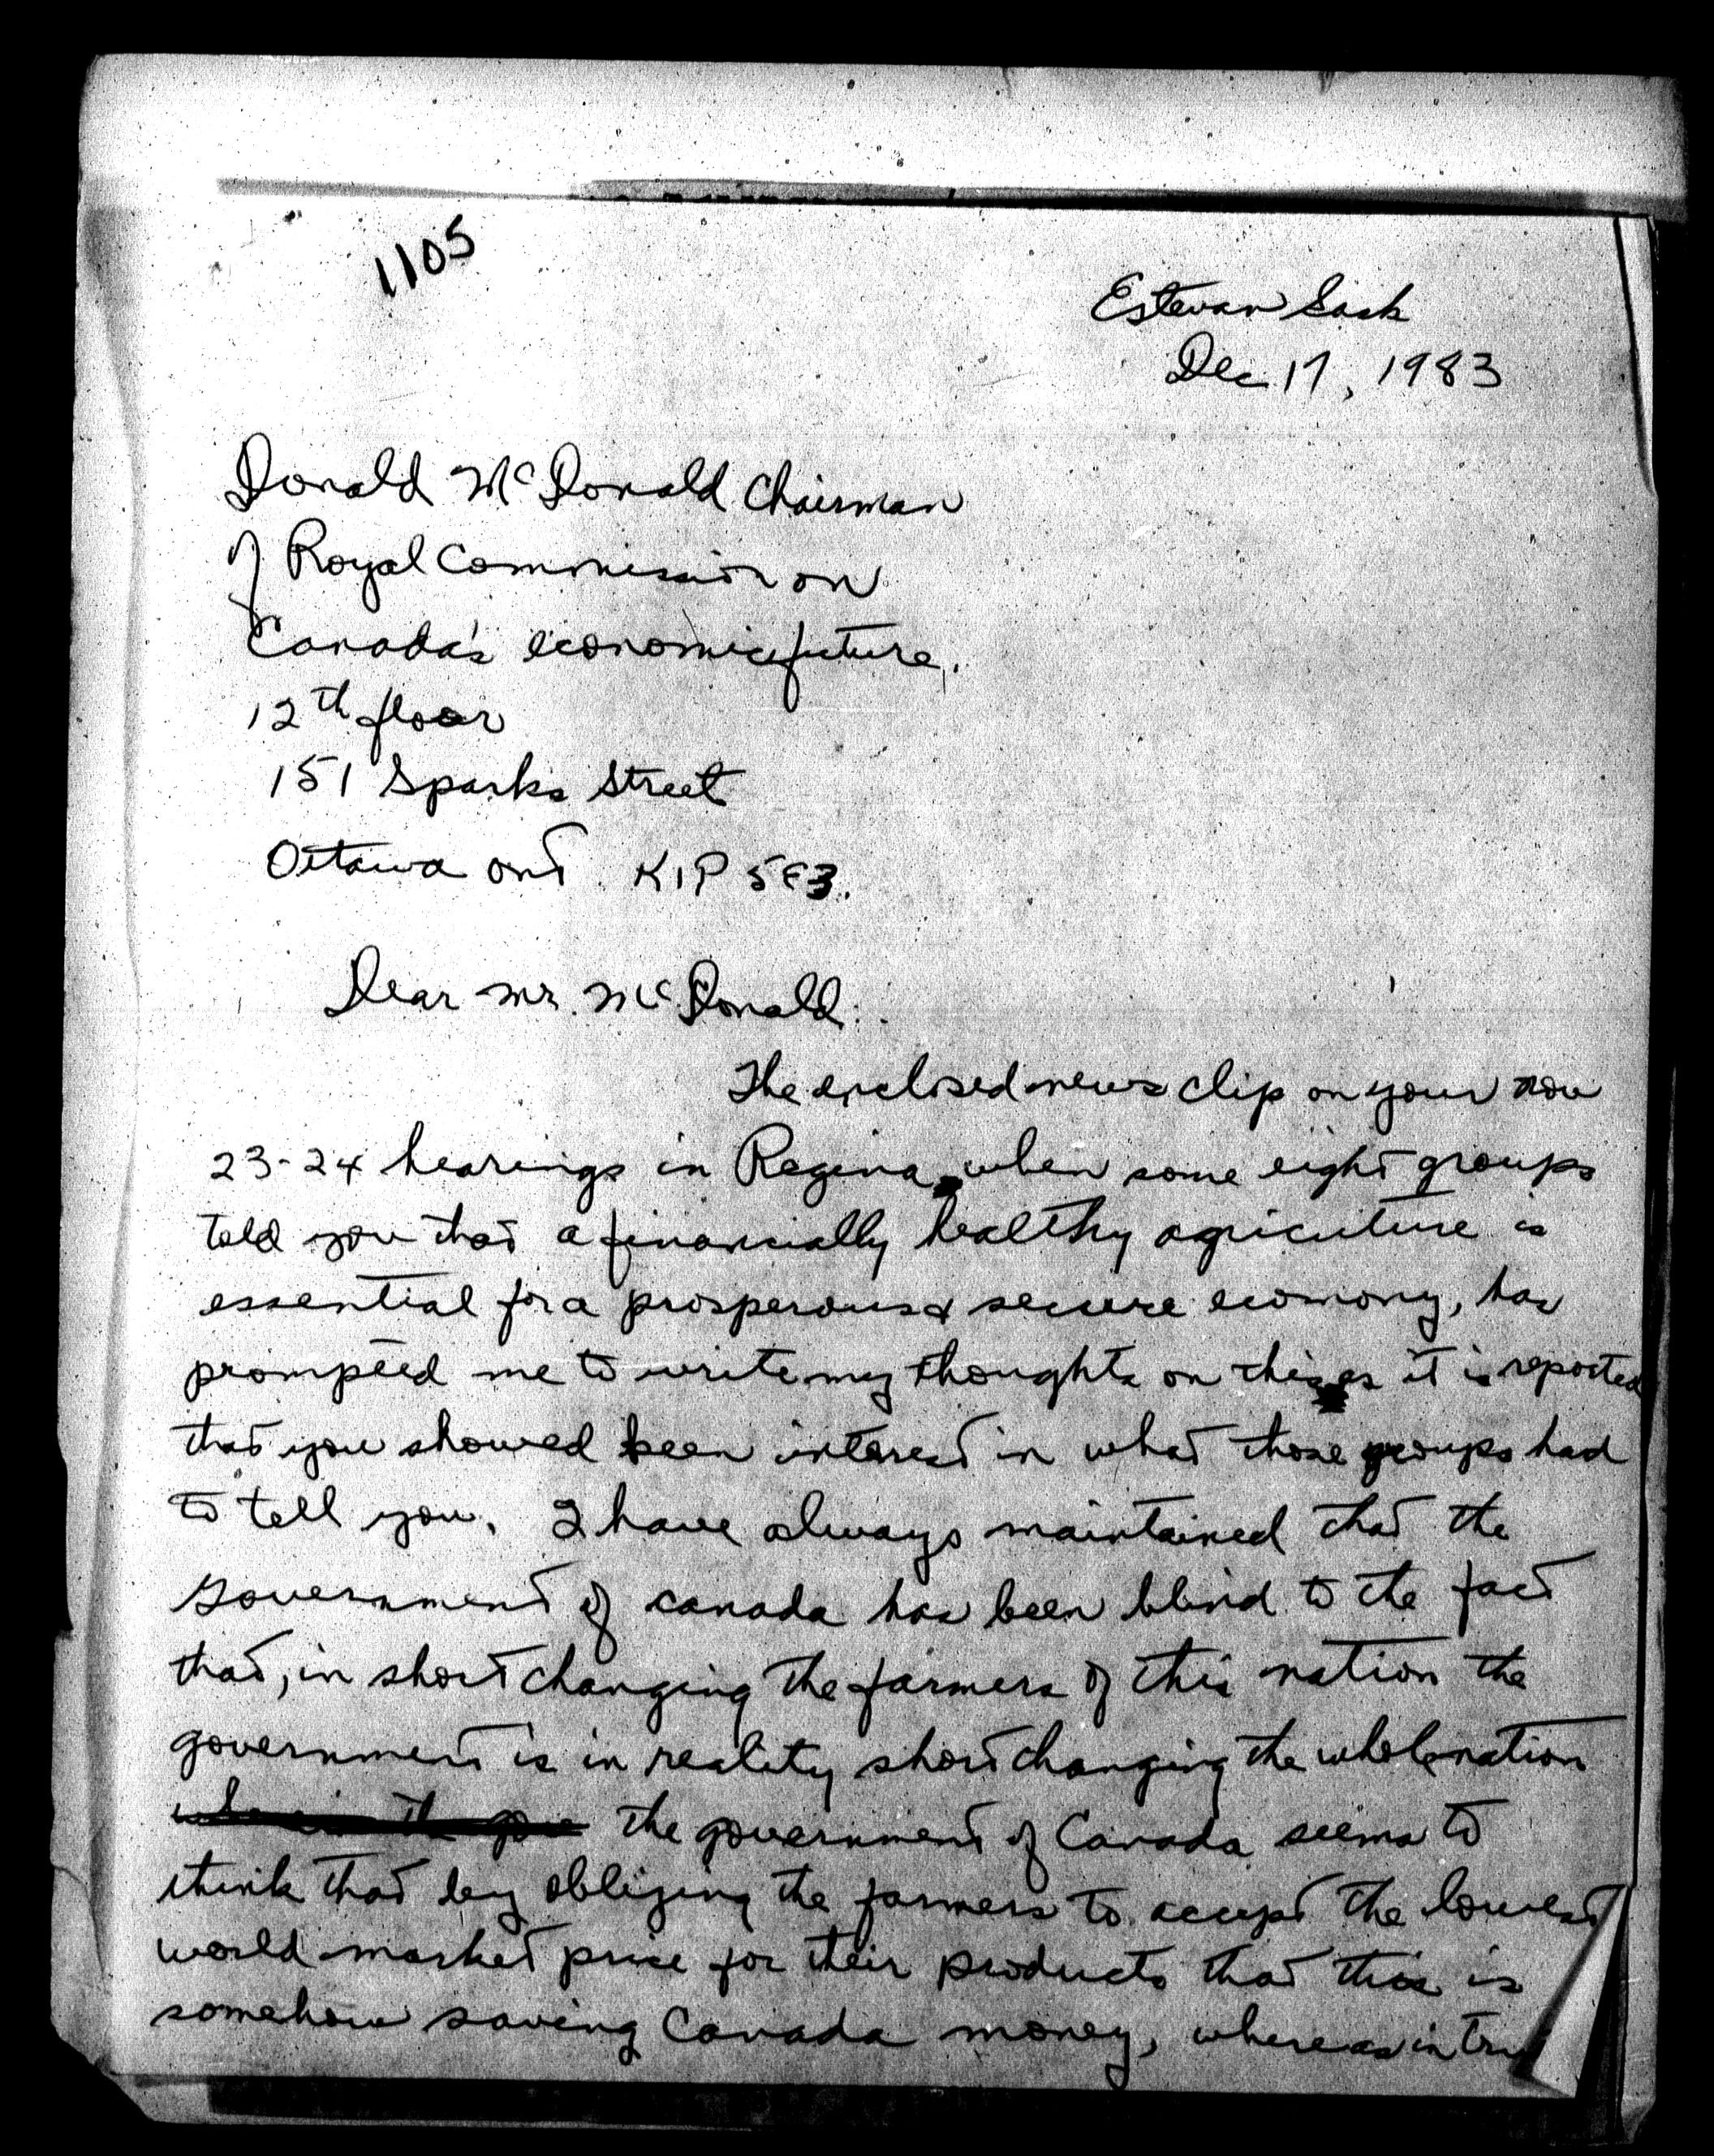 1105
Estevan Sask
Dec 17, 1983
Donald McDonald Chairman
of Royal Commission on
Canada's economic future.
12th floor
151 Sparks Street
Ottawa Ont. K1P 5E3.
Dear Mr. McDonald.
The enclosed news clip on your nov
23-24 hearings in Regina, when some eight groups
told you that a financially healthy agriculture is
essential for a prosperous & secure economy, has
prompted me to write my thoughts on this as it is reported
that you showed keen interest in what those groups had
to tell you. I have always maintained that the
Government of canada has been blind to the fact
that, in short changing the farmers of this nation the
government is in reality short changing the whole nation
the government of Canada seems to
think that by obliging the farmers to accept the lowest
world market price for their products that this is
somehow saving Canada money, where as in